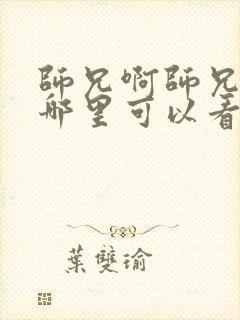 師兄啊師兄
哪里可以看
葉雙瑜